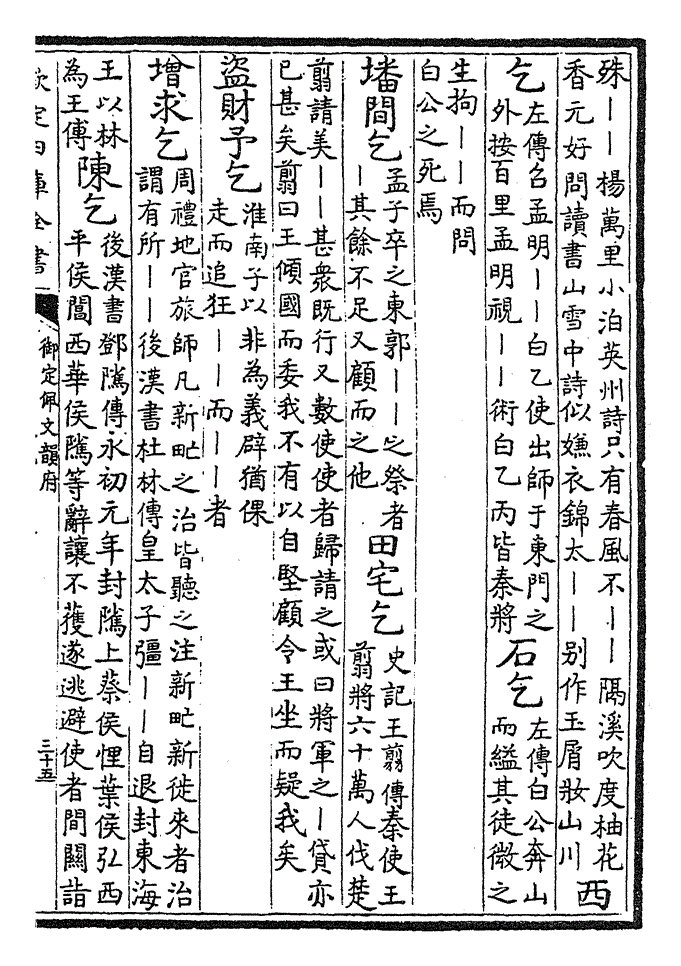 殊｜｜楊萬里小泊英州詩只有春風不｜｜隔溪吹度柚花
香元好問讀書山雪中詩似嫌衣錦太｜｜别作玉屑妝山川
西
乞
左傳召孟明｜｜白乙使出師于東門之
外按百里孟明視｜｜術白乙丙皆秦將
石乞
左傳白公奔山
而縊其徒微之
生拘｜｜而問
白公之死焉
墦間乞
孟子卒之東郭｜｜之祭者
｜其餘不足又顧而之他
田宅乞
史記王翦傳秦使王
翦將六十萬人伐楚
翦請美｜｜甚衆既行又數使使者歸請之或曰將軍之｜貸亦
已甚矣翦曰王傾國而委我不有以自堅顧令王坐而疑我矣
盜財予乞
淮南子以非為義辟猶倮
走而追狂｜｜而｜｜者
增求乞
周禮地官旅師凡新甿之治皆聽之注新甿新徙來者治
謂有所｜｜後漢書杜林傳皇太子彊｜｜自退封東海
王以林
為王傅
陳乞
後漢書鄧隲傳永初元年封隲上蔡侯悝葉侯弘西
平侯閶西華侯隲等辭讓不獲遂逃避使者間關詣
欽定四庫全書
御定佩文韻府
三十五